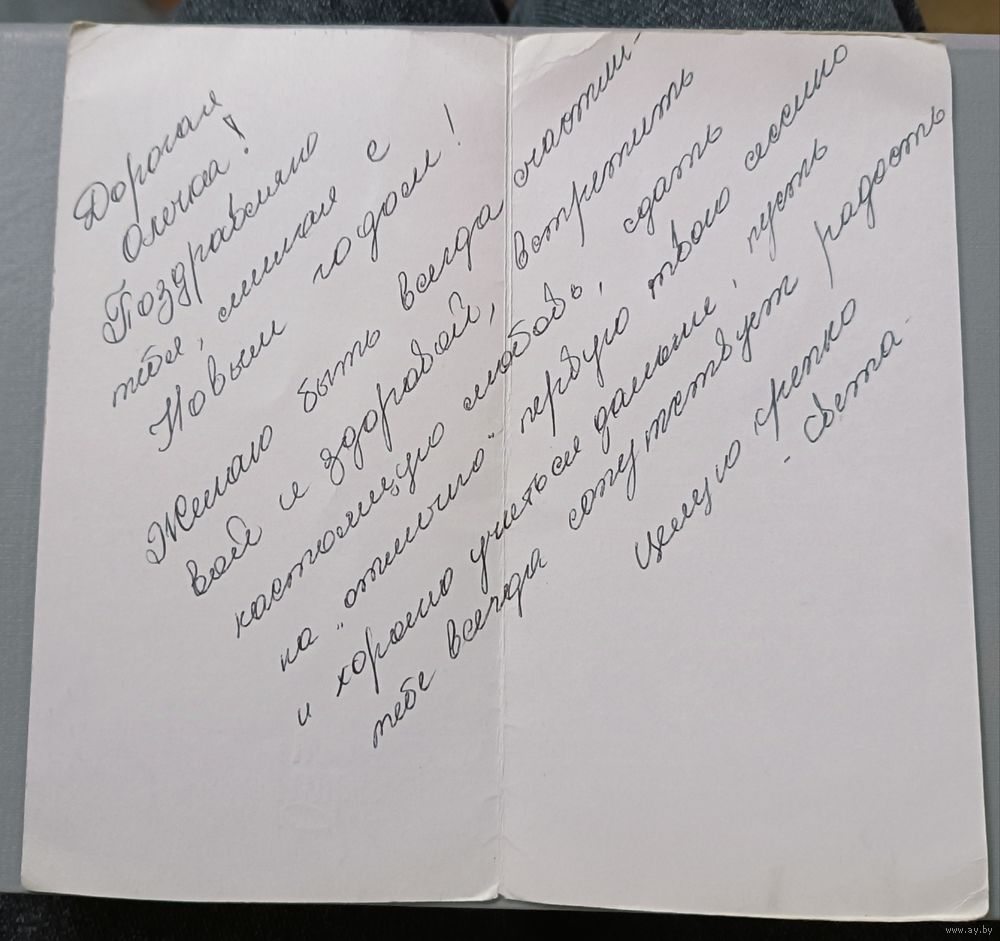 Дорогая
Олечка!
Поздравляю
тебя, милая с
Новым годом!
Желаю быть всегда счастли-
вой и здоровой, встретить
настоящую любовь, сдать
на "отлично" первую твою сессию
и хорошо учиться дальше, пусть
тебе всегда сопутствует радость
Целую крепко
- Света -
www.ay.by